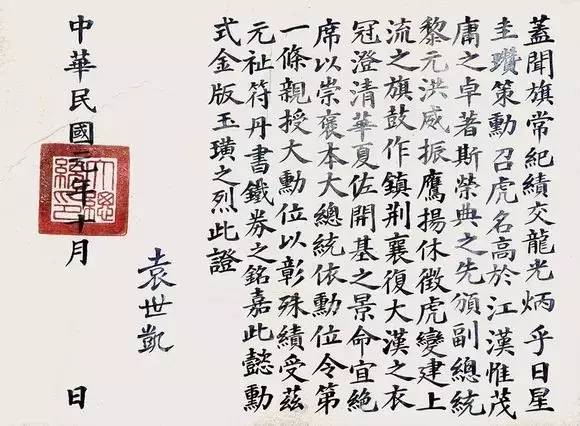 蓋聞旗常紀績交龍光炳乎日星
圭瓚策勳召虎名高於江漢惟茂
庸之卓著斯榮典之先頒副總統
黎元洪威振鷹揚休徵虎變建上
流之旗鼓作鎮荆襄復大漢之衣
冠澄清華夏佐開基之景命宜絶
席以崇褒本大總統依勳位令第
一條親授大勳位以彰殊績受兹
元祉符丹書鐵券之銘嘉此懿勳
式金版玉璜之烈此證
袁世凱
中華民國年十月 日